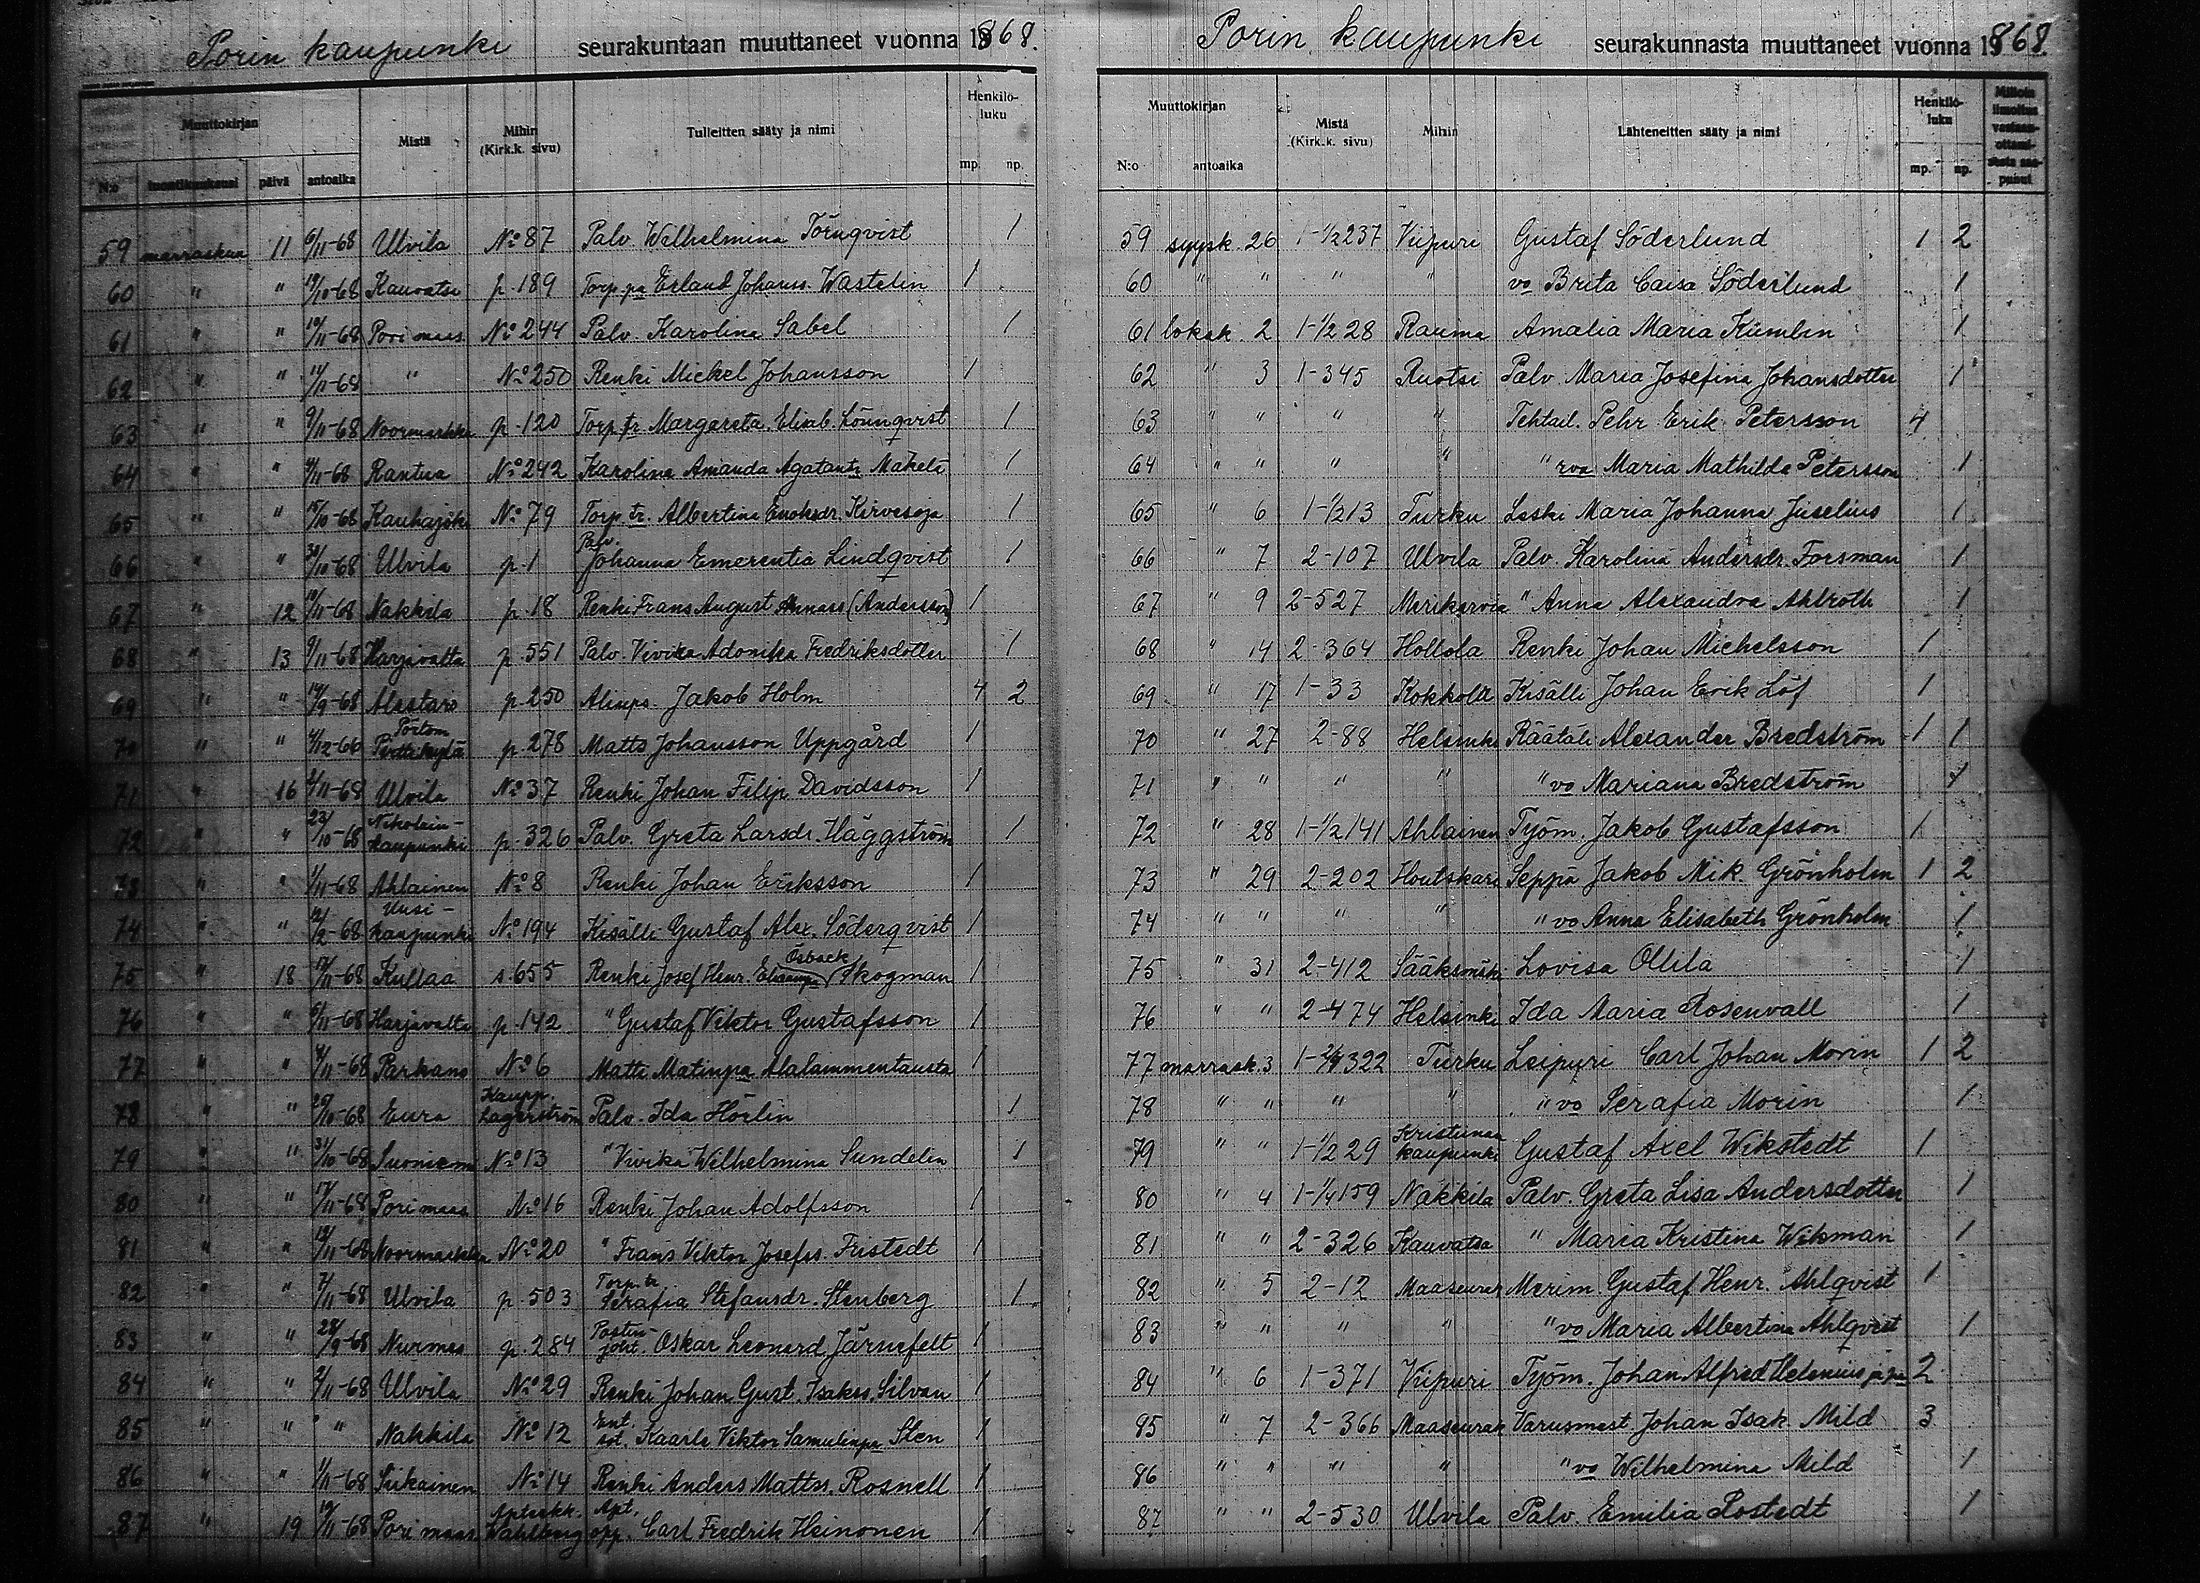 Porin kaupunki seurakuntaan muuttaneet vuonna 1868.
Muuttokirjan Mistä Mihin (Kirk.k. sivu) Tulleitten sääty ja nimi Henkilö-luku
N:o päivä antoaika mp. np.
59 marraskuu 11 6/11-68 Ulvila No 87 Palv. Wilhelmina Törnqvist 1
60 " " 19/10-68 Kauvatsa p. 189 Torp. pa Erland Johanss. Wastelin 1
61 " " 10/11-68 Pori maas. No 244 Palv. Karolina Sabel 1
62 " " 11/11-68 " No 250 Renki Mickel Johansson 1
63 " " 9/11-68 Noormarkku p. 120 Torp. tr. Margareta Elisab. Lönnqvist 1
64 " " /11-68 Rantua No 242 Karolina Amanda Agatantr. Mäkelä 1
65 " " 15/10-68 Kauhajoki No 79 Torp tr. Albertina Enoksdr. Kirvesoja 1
66 " " 30/10-68 Ulvila p. 1 Palv. Johanna Emerentia Lindqvist 1
67 " 12 10/11-68 Nakkila p. 18 Renki Frans August (Andersson) 1
68 " 13 9/11-68 Harjavalta p. 551 Palv. Vivika Adonika Fredriksdotter 1
69 " " 14/9-68 Alastaro p. 250 Aliups. Jakob Holm 4 2
70 " " 4/12-66 Pörtom Pirttikylä p. 278 Matts Johansson Uppgård 1
71 " 16 /11-68 Ulvila No 37 Renki Johan Filip Davidsson 1
72 " " 23/10-68 Nikolain-kaupunki p. 326 Palv. Greta Larsdr. Häggström 1
73 " " 1/11-68 Ahlainen No 8 Renki Johan Eriksson 1
74 " " 12/2-68 Uusi-kaupunki No 194 Kisälli Gustaf Alex. Söderqvist 1
75 " 18 17/11-68 Kullaa s. 655 Renki Josef Henr. Ösback Skogman 1
76 " " 6/11-68 Harjavalta p. 142 " Gustaf Viktor Gustafsson 1
77 " " 4/11-68 Parkano No 6 Matti Matinpa Alalammentausta 1
78 " " /10-68 Eura Kaupp. Lagerström Palv. Ida Hörlin 1
79 " " 31/10-68 Suoniemi No 13 " Vivika Wilhelmina Sundelin 1
80 " " 17/11-68 Pori maas. No 16 Renki Johan Adolfsson 1
81 " " 19/11-68 Noormarkku No 20 " Frans Viktor Josefss. Fristedt 1
82 " " 7/11-68 Ulvila p. 503 Torp. tr Serafia Stefansdr. Stenberg 1
83 " " 28/9-68 Nurmes p. 284 Postin-joht. Oskar Leonard Järnefelt 1
84 " " 2/11-68 Ulvila No 29 Renki Johan Gust. Isakss. Silvan 1
85 " " " Nakkila No 12 Ent. sot. Kaarle Viktor Samulinpa Sten 1
86 " " 1/11-68 Siikainen No 14 Renki Anders Mattss. Rosnell 1
87 " 19 19/11-68 Pori maas. Apteekk. Wahlberg Apt. opp. Carl Fredrik Heinonen 1
Porin kaupunki seurakunnasta muuttaneet vuonna 1868.
Muuttokirjan Mistä (Kirk.k. sivu) Mihin Lähteneitten sääty ja nimi Henkilö-luku Milloin ilmoitus vastaan-ottami-sesta saa-punut
N:o antoaika mp. np.
59 syysk. 26 1-1/2 237 Viipuri Gustaf Söderlund 1 2
60 " " " " vo Brita Caisa Söderlund 1
61 lokak. 2 1-1/2 28 Rauma Amalia Maria Kumlin 1
62 " 3 1-345 Ruotsi Palv. Maria Josefina Johansdotter 1
63 " " " " Tehtail. Pehr Erik Petersson 4
64 " " " " " rva Maria Mathilda Petersson 1
65 " 6 1-1/2 13 Turku Leski Maria Johanna Juselius 1
66 " 7 2-107 Ulvila Palv. Karolina Andersdr. Forsman 1
67 " 9 2-527 Merikarvia " Anna Alexandra Ahlroth 1
68 " 14 2-364 Hollola Renki Johan Michelsson 1
69 " 17 1-33 Kokkola Kisälli Johan Erik Löf 1
70 " 27 2-88 Helsinki Räätäli Alexander Bredström 1 1
71 " " " " " vo Mariana Bredström 1
72 " 28 1-1/2 141 Ahlainen Työm. Jakob Gustafsson 1
73 " 29 2-202 Houtskari Seppä Jakob Mik. Grönholm 1 2
74 " " " " " vo Anna Elisabeth Grönholm 1
75 " 31 2-412 Sääksmäki Lovisa Ollila 1
76 " " 2-474 Helsinki Ida Maria Rosenvall 1
77 marrask. 3 1-3/4 322 Turku Leipuri Carl Johan Morin 1 2
78 " " " " " vo Serafia Morin 1
79 " " 1-1/2 29 Kristiinan kaupunki Gustaf Axel Wikstedt 1
80 " 4 1-1/4 159 Nakkila Palv. Greta Lisa Andersdotter 1
81 " " 2-326 Kauvatsa " Maria Kristina Wikman 1
82 " 5 2-12 Maaseurak Merim. Gustaf Henr. Ahlqvist 1
83 " " " " " vo Maria Albertina Ahlqvist 1
84 " 6 1-371 Viipuri Työm. Johan Alfred Helenius ja pa 2
85 " 7 2-366 Maaseurak Varusmest. Johan Isak Mild 3
86 " " " " " vo Wilhelmina Mild 1
87 " " 2-530 Ulvila Palv. Emilia Rostedt 1